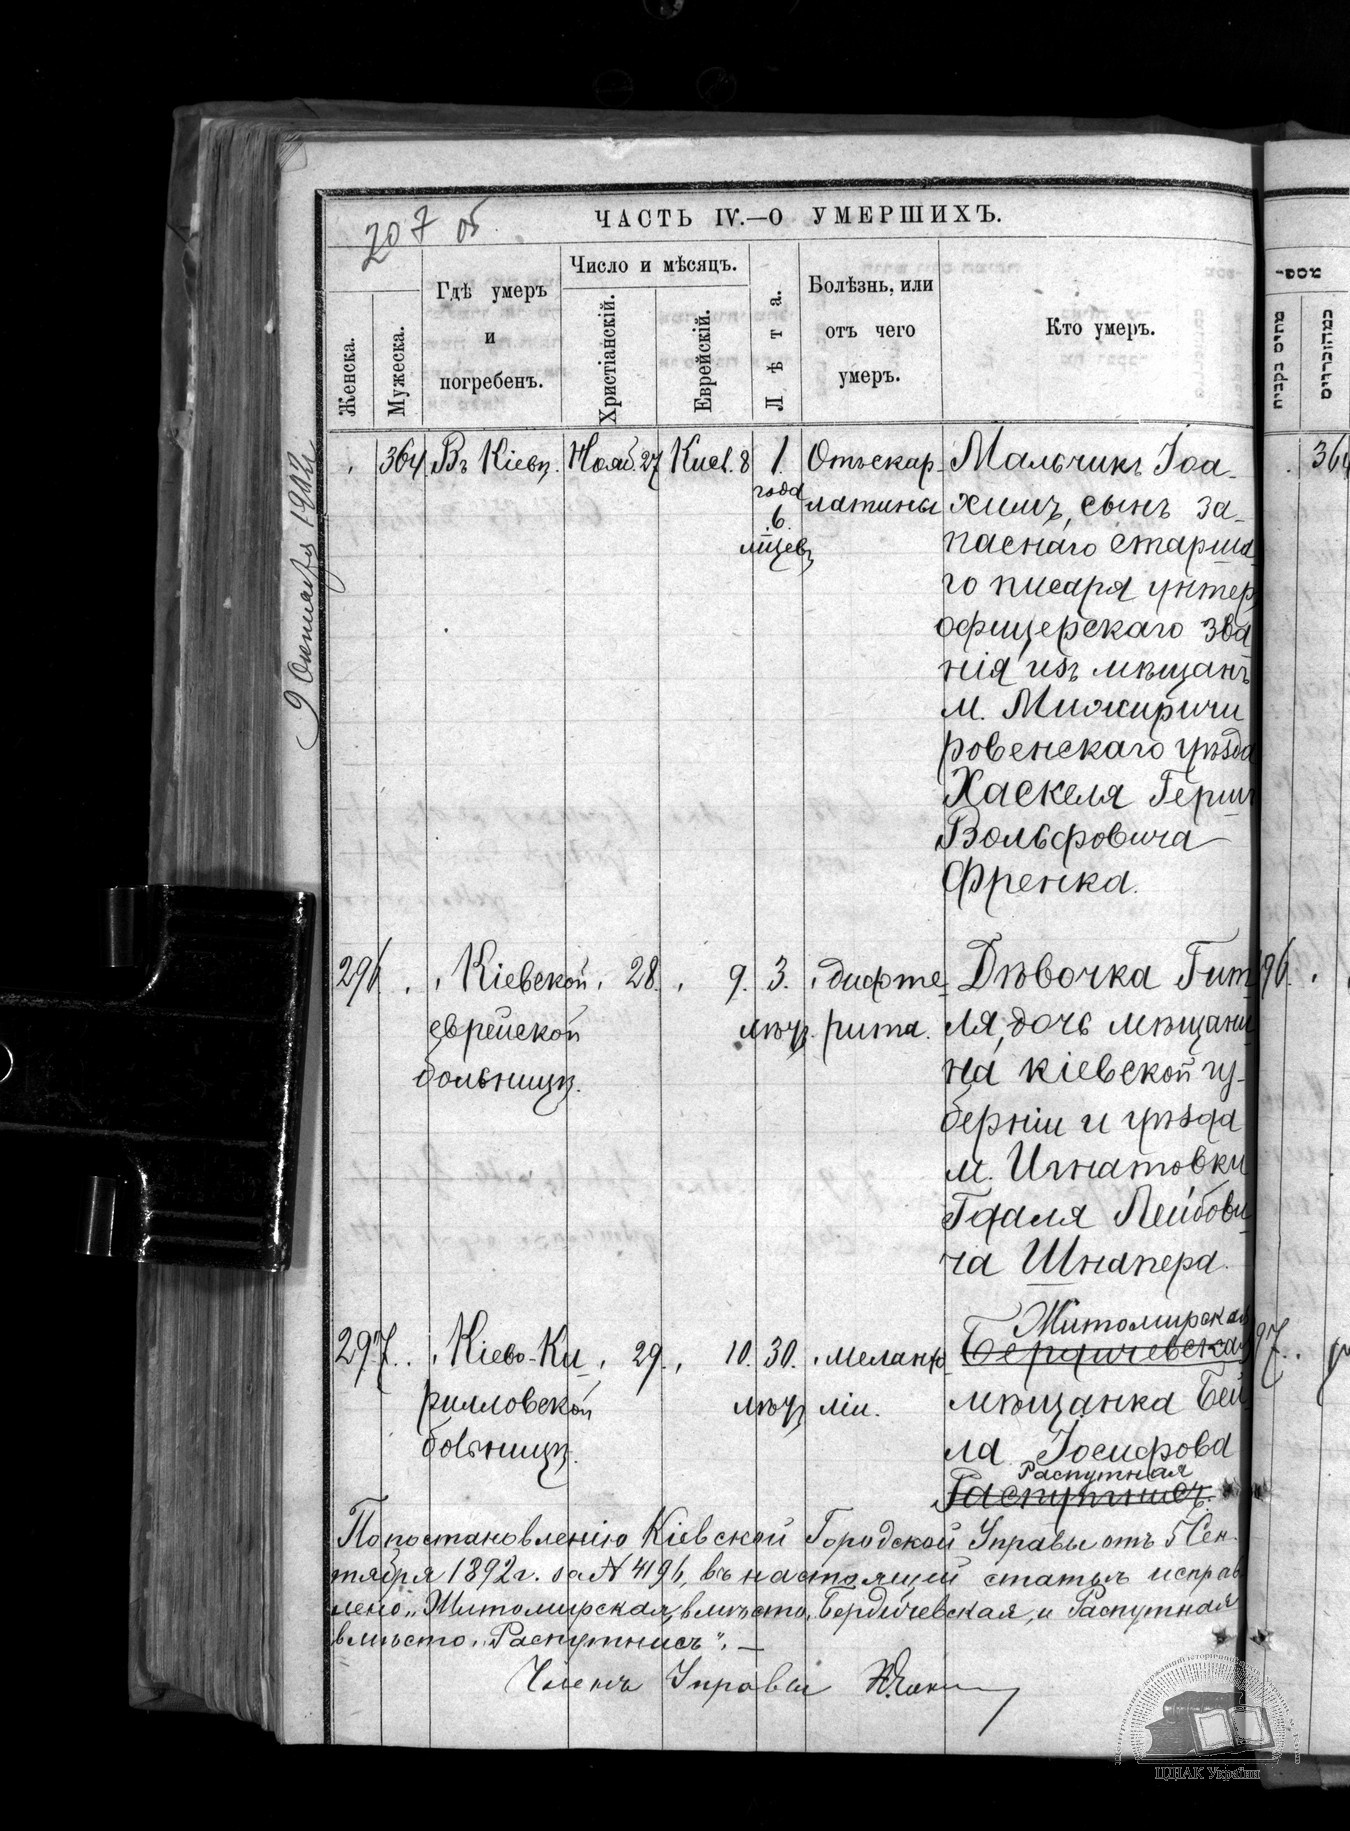 207 об
ЧАСТЬ IV.—О УМЕРШИХЪ.
Женска.
Мужеска.
Гдѣ умеръ
и
погребенъ.
Число и мѣсяцъ.
Христіанскій.
Еврейскій.
Лѣта.
Болѣзнь, или
отъ чего
умеръ.
Кто умеръ.
364. Въ Кіевѣ. Нояб. 27 Кисл. 8 1. Отъ скар-
года латины
6.
мѣсцевъ
Мальчикъ Іоа-
химъ, сынъ за-
паснаго старша-
го писаря унтер
офицерскаго зва
нія изъ мѣщанъ
м. Мижиричи
ровенскаго уѣзда
Хаскеля Герш
Вольфовича
Френка.
296. „ Кіевской „ 28. „ 9. 3. „ дифте-
еврейской мѣсц. рита.
больницѣ.
Дѣвочка Гит
ля, дочь мѣщани
на кіевской гу-
берніи и уѣзда
м. Игнатовки
Гдаля Лейбови
ча Шнапера.
297. „ Кіево-Ки „ 29. „ 10. 30. „ меланхо
рилловской мѣсц ліи.
больницѣ.
Житомирская
Бердичевская
мѣщанка Бей
ла Іосифова
Распутная
Распутнисъ.
По постановленію Кіевской Городской Управы отъ 5 Сен-
тября 1892 г. за № 4196, въ настоящей статьѣ исправ
лено „Житомирская, вмѣсто „Бердичевская, и Распутная
вмѣсто „Распутнисъ". —
Членъ Управы
364
96.
97.
מספ-
ЦДІАК України